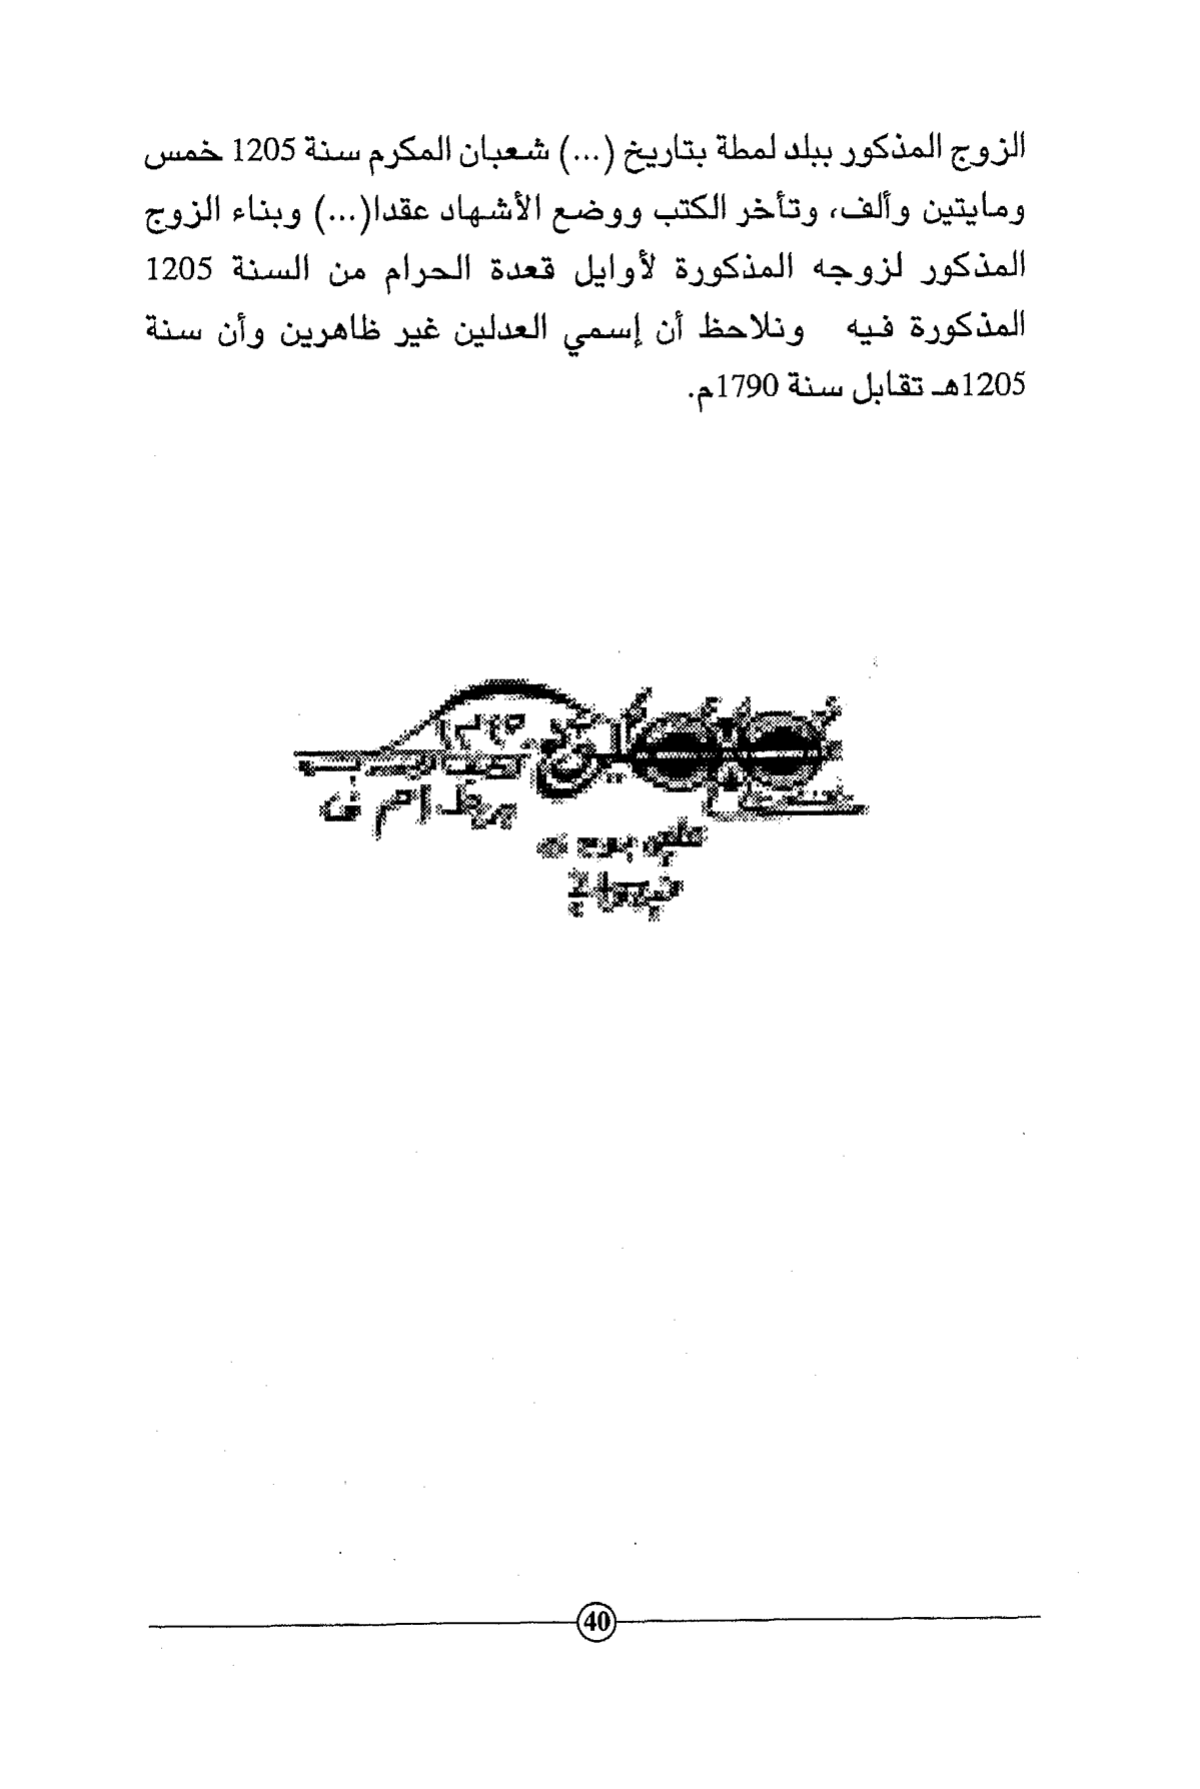 الزوج المذكور ببلد لمطة بتاريخ (...) شعبان المكرم سنة 1205 خمس
ومايتين وألف، وتأخر الكتب ووضع الأشهاد عقدا(...) وبناء الزوج
المذكور لزوجه المذكورة لأوايل قعدة الحرام من السنة 1205
المذكورة فيه ونلاحظ أن إسمي العدلين غير ظاهرين وأن سنة
1205هـ تقابل سنة 1790م.
40